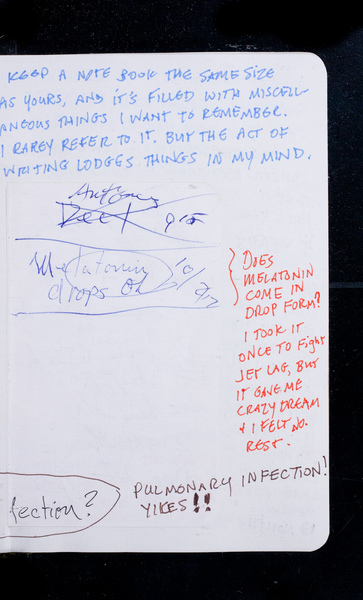 KEEP A NOTE BOOK THE SAME SIZE
AS YOURS, AND IT'S FILLED WITH MISCELL-
ANEOUS THINGS I WANT TO REMEMBER.
I RAREY REFER TO IT. BUT THE ACT OF
WRITING LODGES THINGS IN MY MIND.
Melatonin
drops
DOES
MELATONIN
COME IN
DROP FORM?
I TOOK IT
ONCE TO FIGHT
JET LAG, BUT
IT GAVE ME
CRAZY DREAM
& I FELT NO
REST.
fection?
PULMONARY INFECTION!
YIKES!!